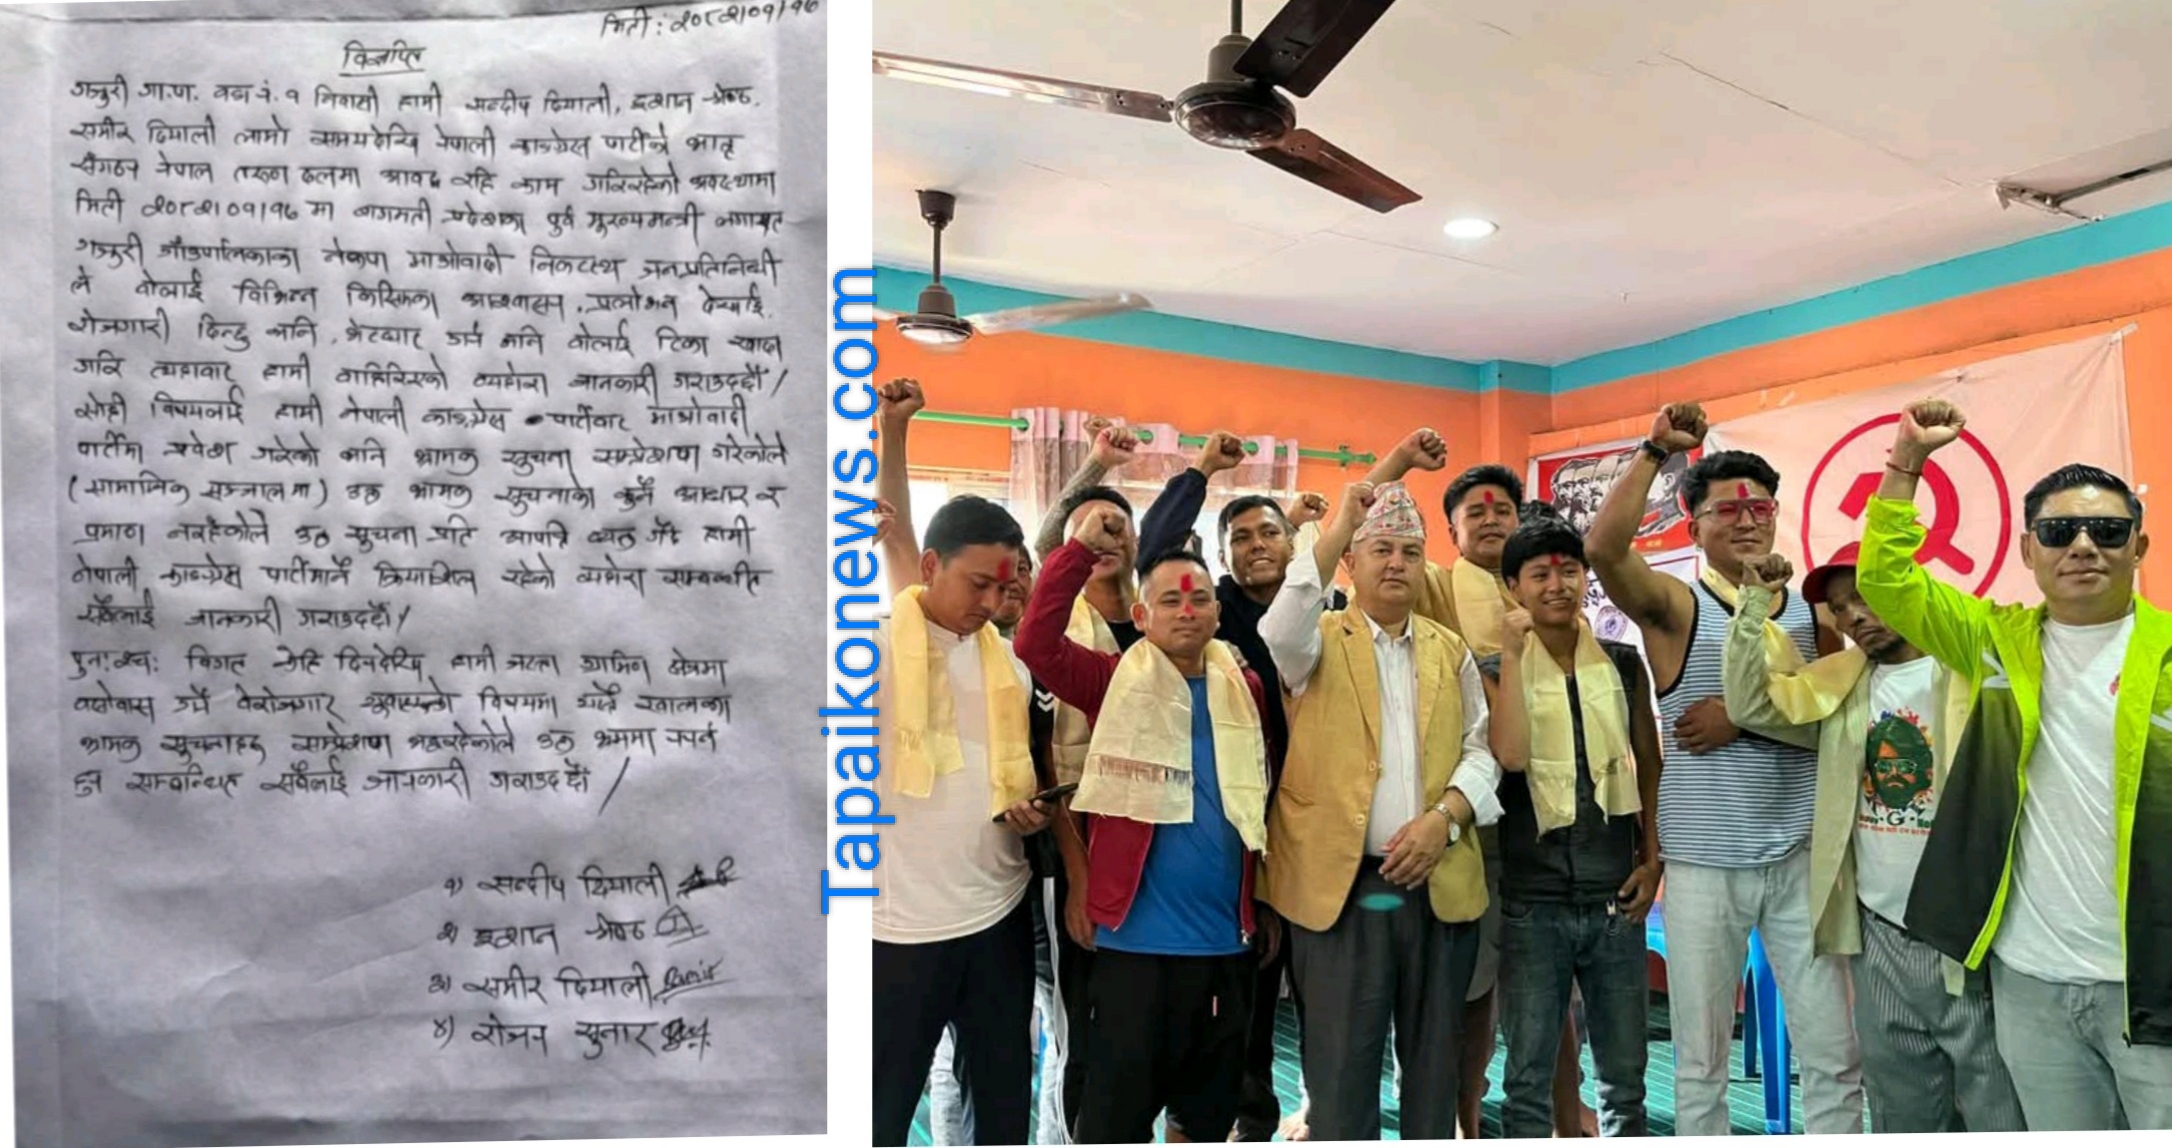 मिती : २०८२।०१।१७
विज्ञप्ति
गजुरी गा.पा. वडा नं. १ निवासी हामी सन्दीप दिमाली, इशान श्रेष्ठ.
समीर दिमाली लामो समयदेखि नेपाली काङग्रेस पार्टीको भातृ
संगठन नेपाल तरुण दलमा आवद्ध रहि काम गरिरहेको अवस्थामा
मिती २०८२।०१।१७ मा बागमती प्रदेशका पुर्व मुख्यमन्त्री लगायत
गजुरी गाँउपालिकाका नेकपा माओवादी निकटस्थ जनप्रतिनिधी
ले बोलाई विभिन्न किसिमका आश्वासन, प्रलोभन देखाई.
रोजगारी दिन्छु भनि, भेटघाट गर्न भनि बोलाई टिका खादा
गरि त्यहाबाट हामी बाहिरिएको व्यहोरा जानकारी गराउदछौं/
सोही विषयलाई हामी नेपाली काङग्रेस पार्टीबाट माओवादी
पार्टीमा प्रवेश गरेको भनि भ्रामक सुचना सम्प्रेशण गरेकोले
(सामाजिक सञ्जालमा) उक्त भ्रामक सूचनाको कुनै आधार र
प्रमाण नरहेकोले उक्त सूचना प्रति आपत्ति व्यक्त गर्दै हामी
नेपाली काङग्रेस पार्टीमानै क्रियाशिल रहेको व्यहोरा सम्बन्धीत
सबैलाई जानकारी गराउदछौं/
पुनःश्चः विगत केहि दिनदेखि हामी जस्ता ग्रामिण क्षेत्रमा
बसोवास गर्ने बेरोजगार युवाहरुको विषयमा यस्तै खालका
भ्रामक सूचनाहरु सम्प्रेशण भइरहेकोले उक्त भ्रममा नपर्न
हुन सम्बन्धित सबैलाई जानकारी गराउदछौं/
१) सन्दीप दिमाली
२) इशान श्रेष्ठ
३) समीर दिमाली Samir
४) रोजन सुनार
Tapaikonews.com